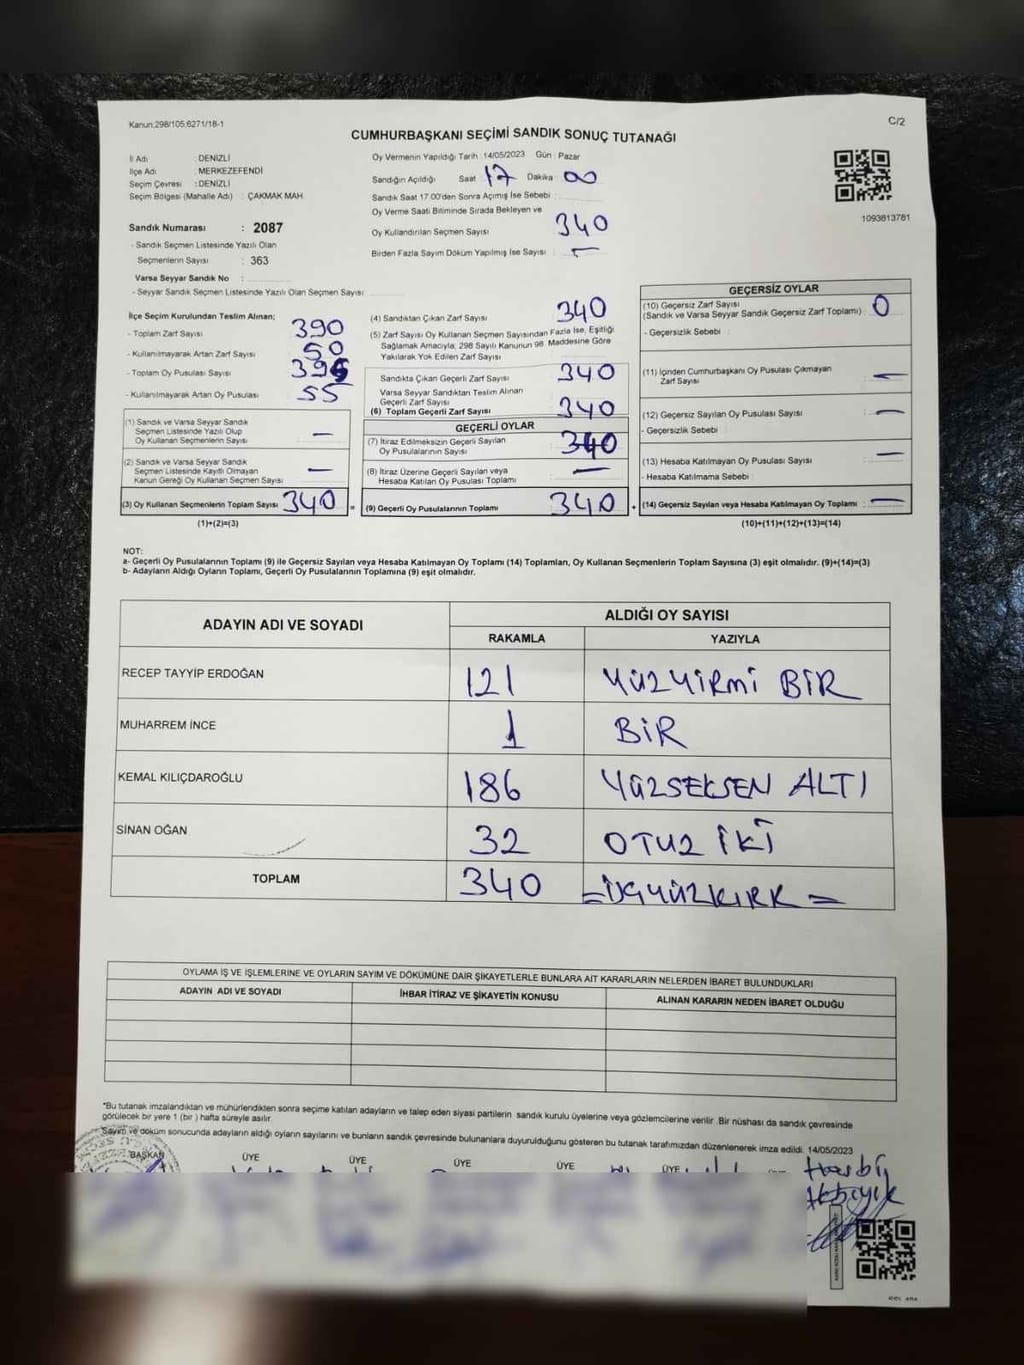 Kanun;298/105;6271/18-1
C/2
CUMHURBAŞKANI SEÇİMİ SANDIK SONUÇ TUTANAĞI
İl Adı : DENİZLİ
İlçe Adı : MERKEZEFENDİ
Seçim Çevresi : DENİZLİ
Seçim Bölgesi (Mahalle Adı) : ÇAKMAK MAH.
Sandık Numarası : 2087
- Sandık Seçmen Listesinde Yazılı Olan
Seçmenlerin Sayısı : 363
Varsa Seyyar Sandık No :
- Seyyar Sandık Seçmen Listesinde Yazılı Olan Seçmen Sayısı
Oy Vermenin Yapıldığı Tarih :14/05/2023 Gün : Pazar
Sandığın Açıldığı Saat 17 Dakika 00
Sandık Saat 17:00'den Sonra Açımış İse Sebebi :
Oy Verme Saati Bitiminde Sırada Bekleyen ve
Oy Kullandırılan Seçmen Sayısı 340
Birden Fazla Sayım Döküm Yapılmış İse Sayısı : -
1093813781
İlçe Seçim Kurulundan Teslim Alınan;
- Toplam Zarf Sayısı 390
- Kullanılmayarak Artan Zarf Sayısı 50
- Toplam Oy Pusulası Sayısı 395
- Kullanılmayarak Artan Oy Pusulası 55
(1) Sandık ve Varsa Seyyar Sandık
Seçmen Listesinde Yazılı Olup
Oy Kullanan Seçmenlerin Sayısı —
(2) Sandık ve Varsa Seyyar Sandık
Seçmen Listesinde Kayıtlı Olmayan
Kanun Gereği Oy Kullanan Seçmen Sayısı —
(3) Oy Kullanan Seçmenlerin Toplam Sayısı 340
(1)+(2)=(3)
(4) Sandıktan Çıkan Zarf Sayısı 340
(5) Zarf Sayısı Oy Kullanan Seçmen Sayısından Fazla İse, Eşitliği
Sağlamak Amacıyla; 298 Sayılı Kanunun 98. Maddesine Göre
Yakılarak Yok Edilen Zarf Sayısı
Sandıkta Çıkan Geçerli Zarf Sayısı 340
Varsa Seyyar Sandıktan Teslim Alınan
Geçerli Zarf Sayısı
(6) Toplam Geçerli Zarf Sayısı 340
GEÇERLİ OYLAR
(7) İtiraz Edilmeksizin Geçerli Sayılan
Oy Pusulalarının Sayısı 340
(8) İtiraz Üzerine Geçerli Sayılan veya
Hesaba Katılan Oy Pusulası Toplamı —
= (9) Geçerli Oy Pusulalarının Toplamı 340 +
GEÇERSİZ OYLAR
(10) Geçersiz Zarf Sayısı
(Sandık ve Varsa Seyyar Sandık Geçersiz Zarf Toplamı) : 0
- Geçersizlik Sebebi :
(11) İçinden Cumhurbaşkanı Oy Pusulası Çıkmayan
Zarf Sayısı —
(12) Geçersiz Sayılan Oy Pusulası Sayısı —
- Geçersizlik Sebebi
(13) Hesaba Katılmayan Oy Pusulası Sayısı —
- Hesaba Katılmama Sebebi :
(14) Geçersiz Sayılan veya Hesaba Katılmayan Oy Toplamı —
(10)+(11)+(12)+(13)=(14)
NOT:
a- Geçerli Oy Pusulalarının Toplamı (9) ile Geçersiz Sayılan veya Hesaba Katılmayan Oy Toplamı (14) Toplamları, Oy Kullanan Seçmenlerin Toplam Sayısına (3) eşit olmalıdır. (9)+(14)=(3)
b- Adayların Aldığı Oyların Toplamı, Geçerli Oy Pusulalarının Toplamına (9) eşit olmalıdır.
ADAYIN ADI VE SOYADI ALDIĞI OY SAYISI
RAKAMLA YAZIYLA
RECEP TAYYİP ERDOĞAN 121 YÜZYİRMİ BİR
MUHARREM İNCE 1 BİR
KEMAL KILIÇDAROĞLU 186 YÜZSEKSEN ALTI
SİNAN OĞAN 32 OTUZ İKİ
TOPLAM 340 =ÜÇYÜZKIRK=
OYLAMA İŞ VE İŞLEMLERİNE VE OYLARIN SAYIM VE DÖKÜMÜNE DAİR ŞİKAYETLERLE BUNLARA AİT KARARLARIN NELERDEN İBARET BULUNDUKLARI
ADAYIN ADI VE SOYADI İHBAR İTİRAZ VE ŞİKAYETİN KONUSU ALINAN KARARIN NEDEN İBARET OLDUĞU
*Bu tutanak imzalandıktan ve mühürlendikten sonra seçime katılan adayların ve talep eden siyasi partilerin sandık kurulu üyelerine veya gözlemcilerine verilir. Bir nüshası da sandık çevresinde
görülecek bir yere 1 (bir ) hafta süreyle asılır.
Sayım ve döküm sonucunda adayların aldığı oyların sayılarını ve bunların sandık çevresinde bulunanlara duyurulduğunu gösteren bu tutanak tarafımızdan düzenlenerek imza edildi. 14/05/2023
BAŞKAN ÜYE ÜYE ÜYE ÜYE ÜYE